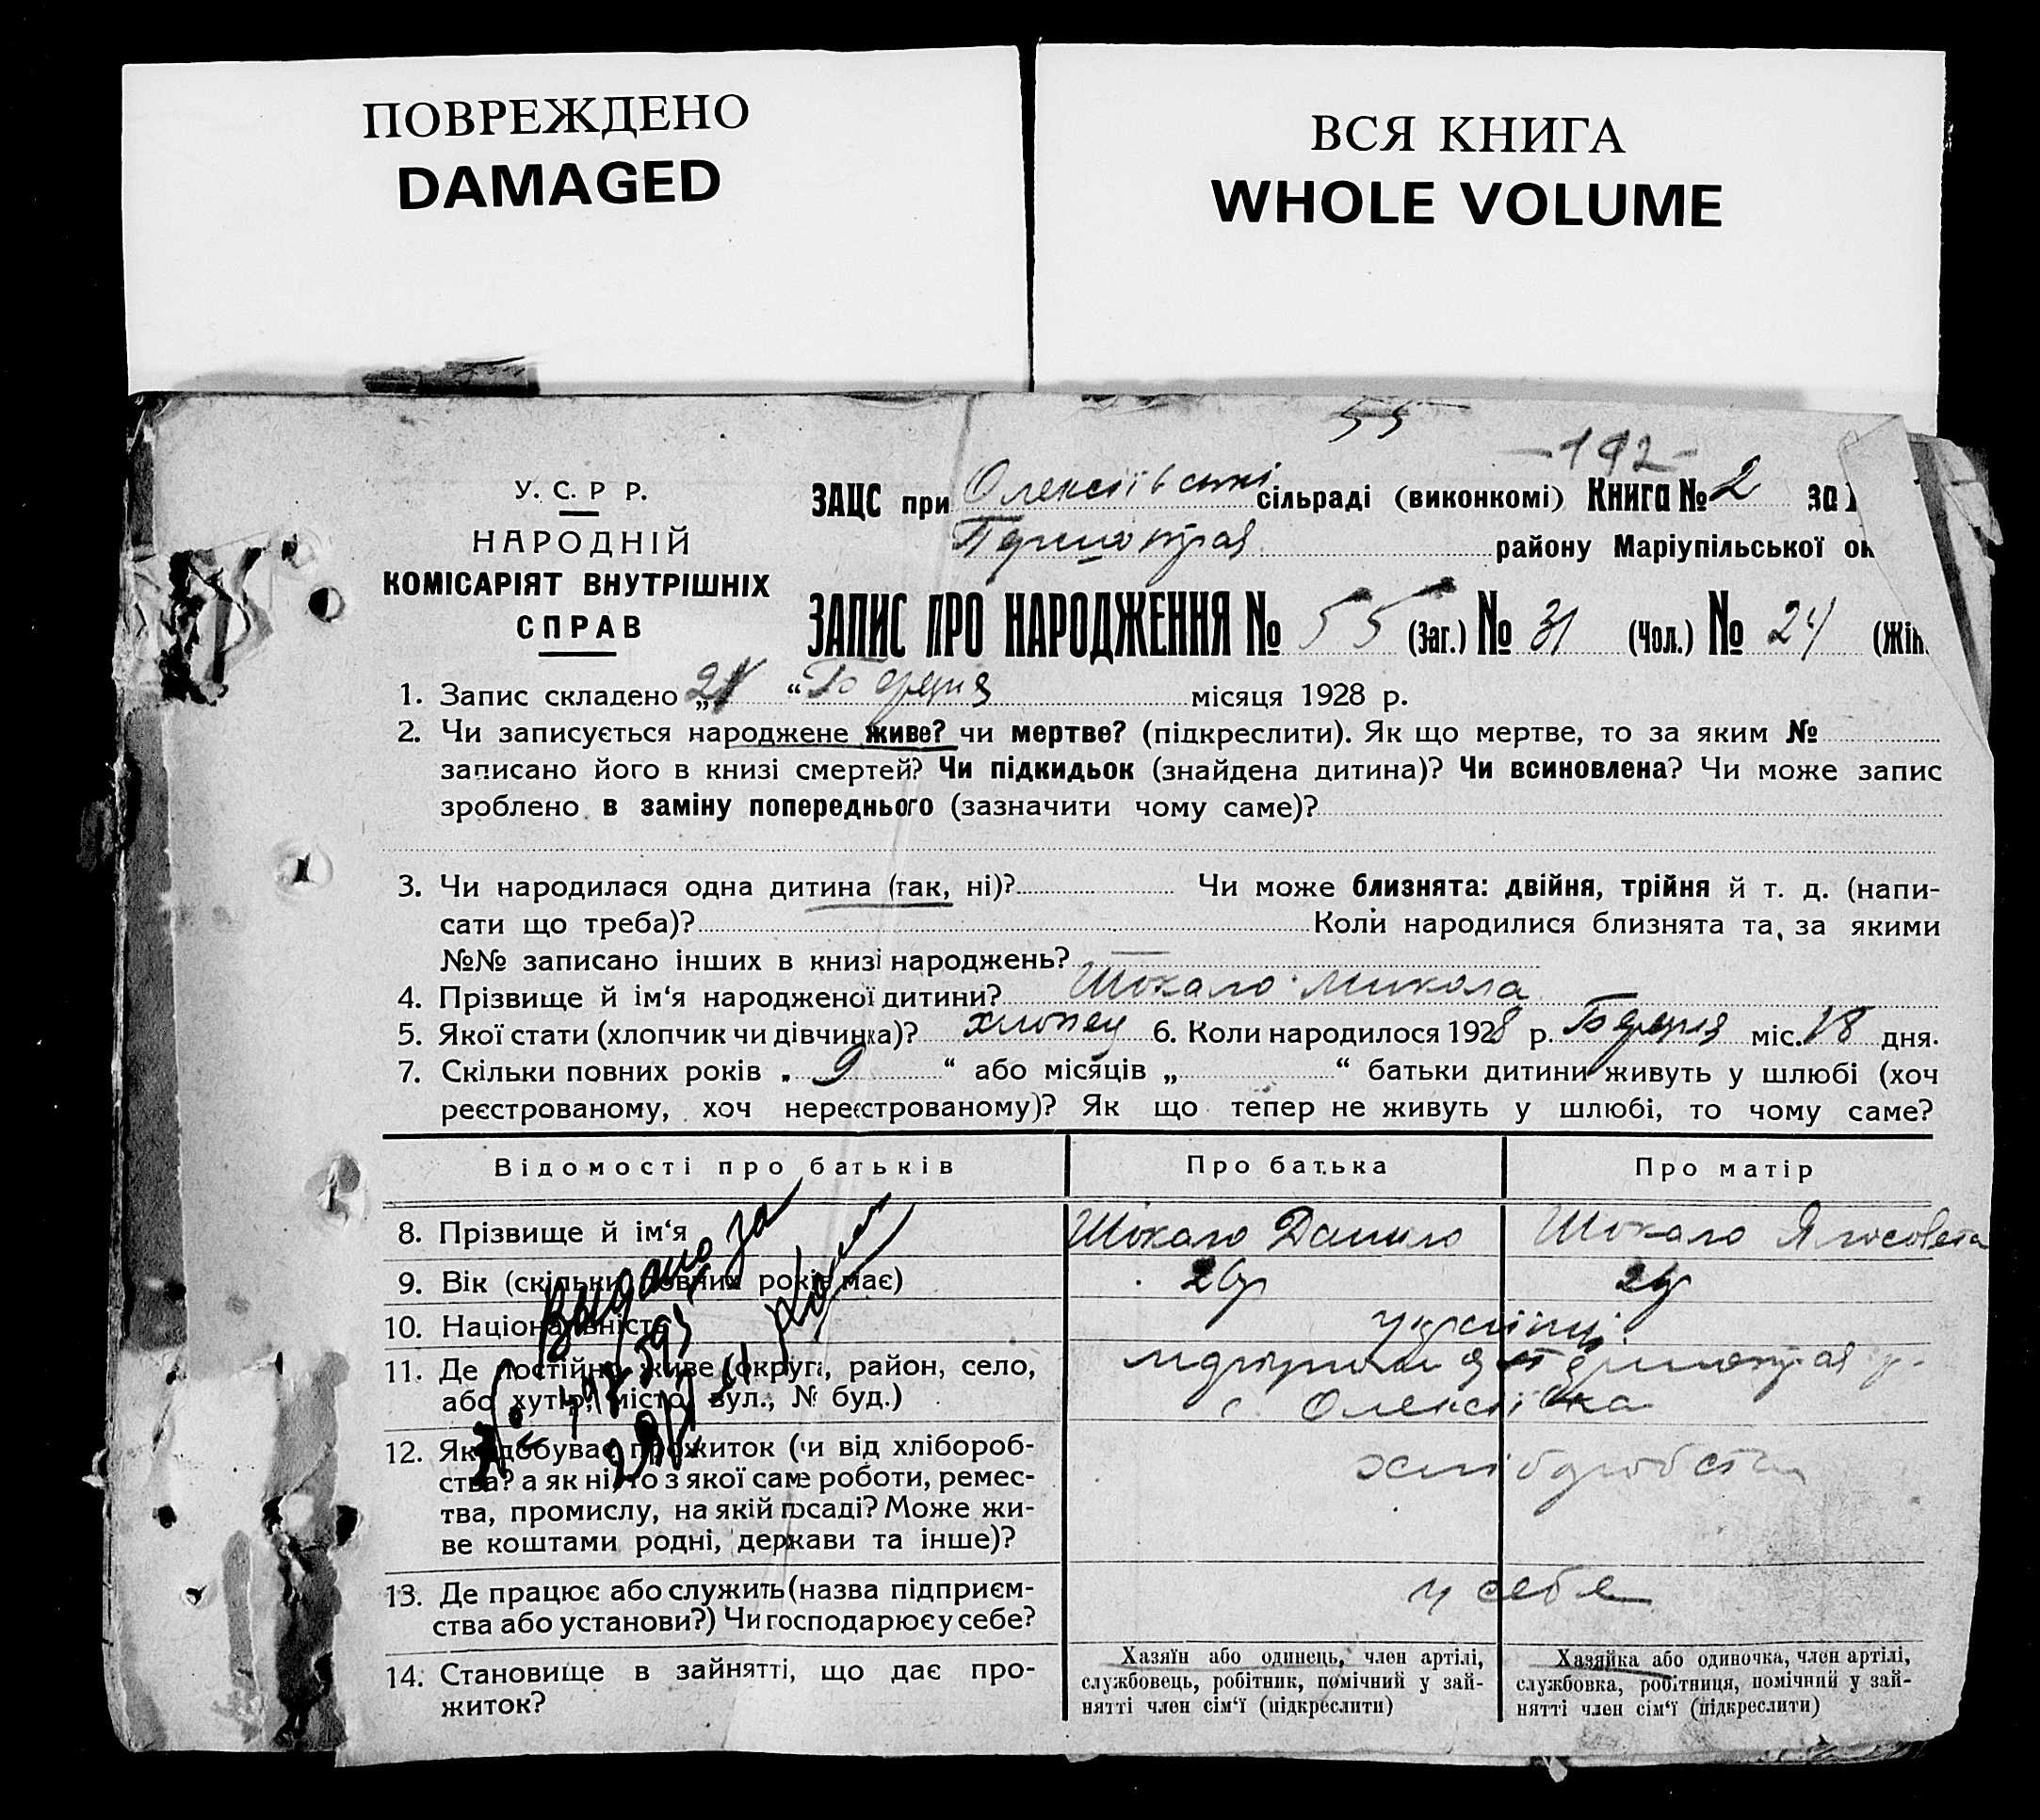 ПОВРЕЖДЕНО
DAMAGED
ВСЯ КНИГА
WHOLE VOLUME
55
-192-
У. С. Р Р.
НАРОДНІЙ
КОМІСАРІЯТ ВНУТРІШНІХ
СПРАВ
ЗАЦС при Олексіївські сільраді (виконкомі) Книга № 2 за
району Маріупільської ок
ЗАПИС ПРО НАРОДЖЕННЯ № 55 (Заг.) № 31 (Чол.) № 24 (Жін.
1. Запис складено „ “ Березня місяця 1928 р.
2. Чи записується народжене живе? чи мертве? (підкреслити). Як що мертве, то за яким №
записано його в книзі смертей? Чи підкидьок (знайдена дитина)? Чи всиновлена? Чи може запис
зроблено в заміну попереднього (зазначити чому саме)?
3. Чи народилася одна дитина (так, ні)? Чи може близнята: двійня, трійня й т. д. (напи-
сати що треба)? Коли народилися близнята та, за якими
№№ записано інших в книзі народжень? —
4. Прізвище й ім‘я народженої дитини? Шокало Микола
5. Якої стати (хлопчик чи дівчинка)? хлопец 6. Коли народилося 1928 р. Березня міс. 18 дня.
7. Скільки повних років „ 9 “ або місяців „ “ батьки дитини живуть у шлюбі (хоч
реєстрованому, хоч нереєстрованому)? Як що тепер не живуть у шлюбі, то чому саме?
Відомості про батьків Про батька Про матір
8. Прізвище й ім‘я Шокало Данило Шокало Ялисовета
9. Вік (скільки повних років має)
10. Національність українці
11. Де постійно живе (округа, район, село,
або хутір, місто, вул., № буд.) с. Олексіївка
Выдано за
12. Як здобуває прожиток (чи від хлібороб- хліборобство
ства? а як ні, то з якої саме роботи, ремес-
тва, промислу, на якій посаді? Може жи-
ве коштами родні, держави та інше)?
13. Де працює або служить (назва підприєм- у себе
ства або установи?) Чи господарює у себе?
14. Становище в зайнятті, що дає про-
житок?
Хазяїн або одинець, член артілі,
службовець, робітник, помічний у зай-
нятті член сім‘ї (підкреслити)
Хазяйка або одиночка, член артілі,
службовка, робітниця, помічний у зай-
нятті член сім‘ї (підкреслити)